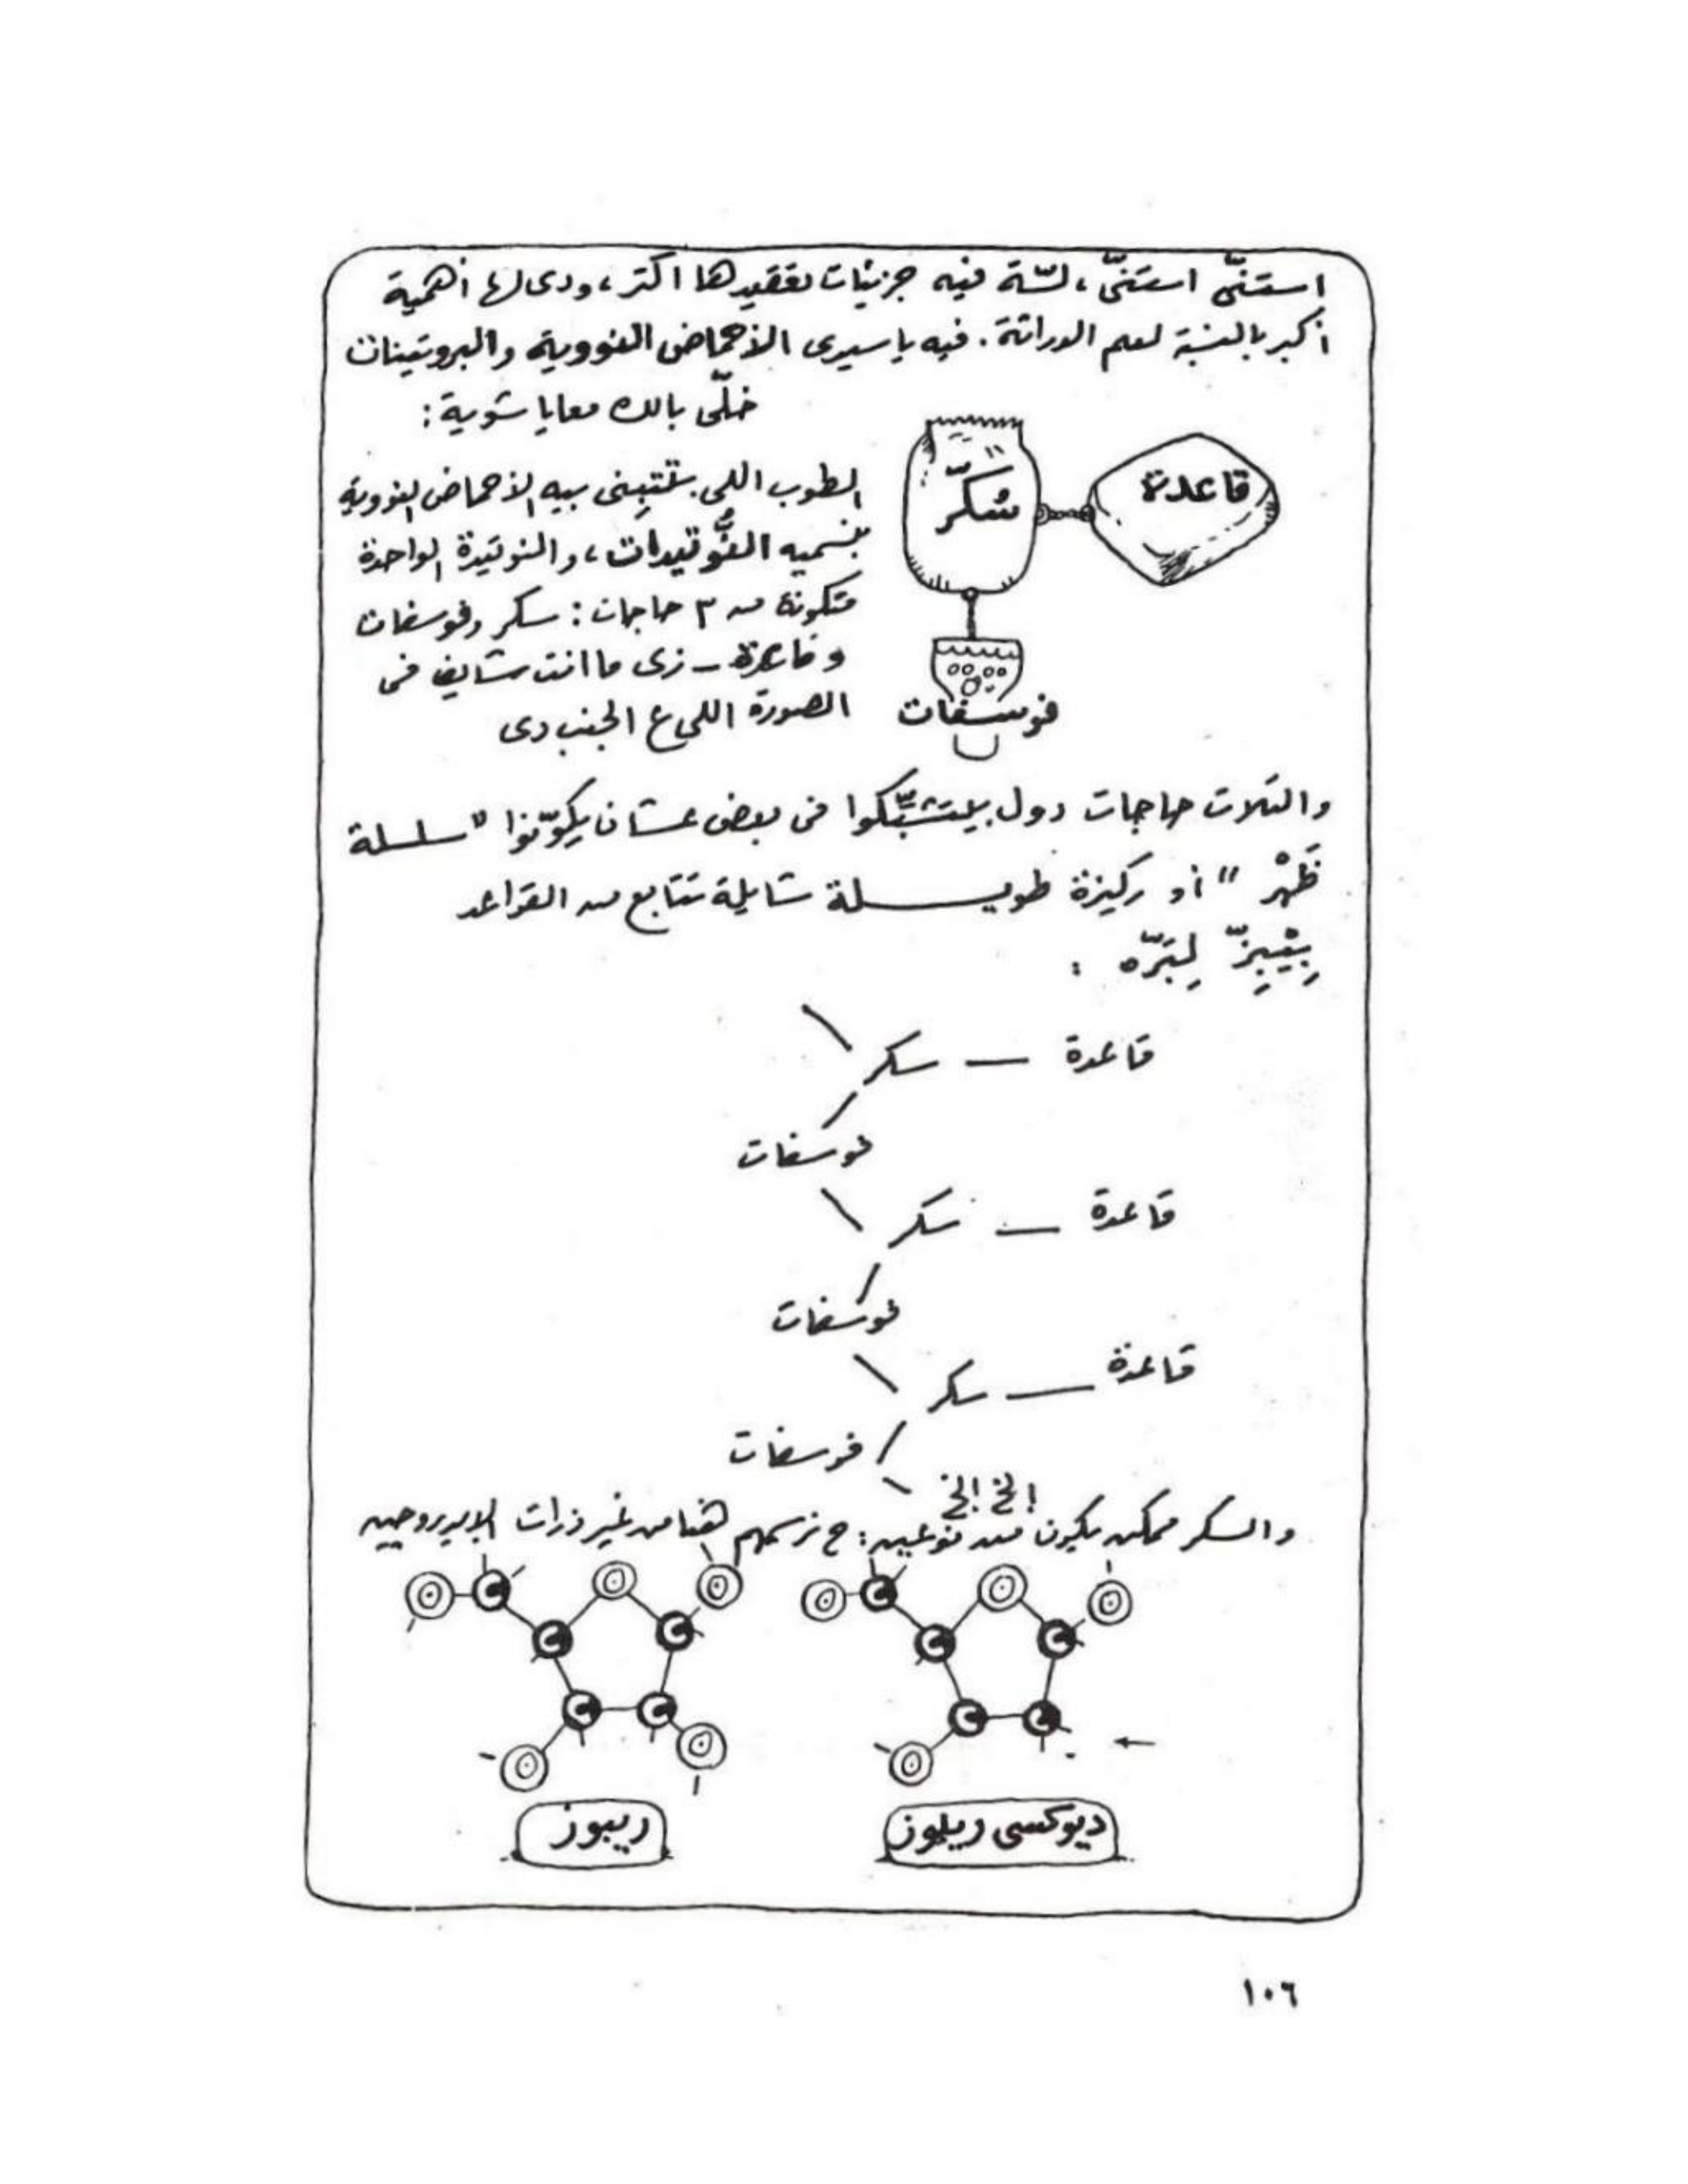 استنّى استنّى، لسّة فيه جزيئات تعقيدها اكتر، ودى لها أهمية
أكبر بالنسبة لعلم الوراثة. فيه ياسيدى الأحماض النووية والبروتينات
خلّى بالك معايا شوية:
الطوب اللى بتتبنى بيه الأحماض النووية
بنسميه النُّوتيدات، والنوتيدة الواحدة
متكونة من ٣ حاجات: سكر وفوسفات
وقاعدة ـ زى ما انت شايف فى
الصورة اللى ع الجنب دى
سُكّر
قاعدة
فوسفات
والتلات حاجات دول بيتشبِّكوا فى بعض عشان يكوّنوا "سلسلة
ظَهْر" أو ركيزة طويـــلة شايلة تتابع من القواعد
بِيْبِزّ لِبَرّه :
قاعدة — سكر
فوسفات
قاعدة — سكر
فوسفات
قاعدة — سكر
فوسفات
إلخ إلخ
والسكر ممكن يكون من نوعين: ح نرسمهم هنا من غير ذرات الإيدروجين
O C O O C C C C O O
O C O O C C C C O
ريبوز
ديوكسى ريبوز
١٠٦